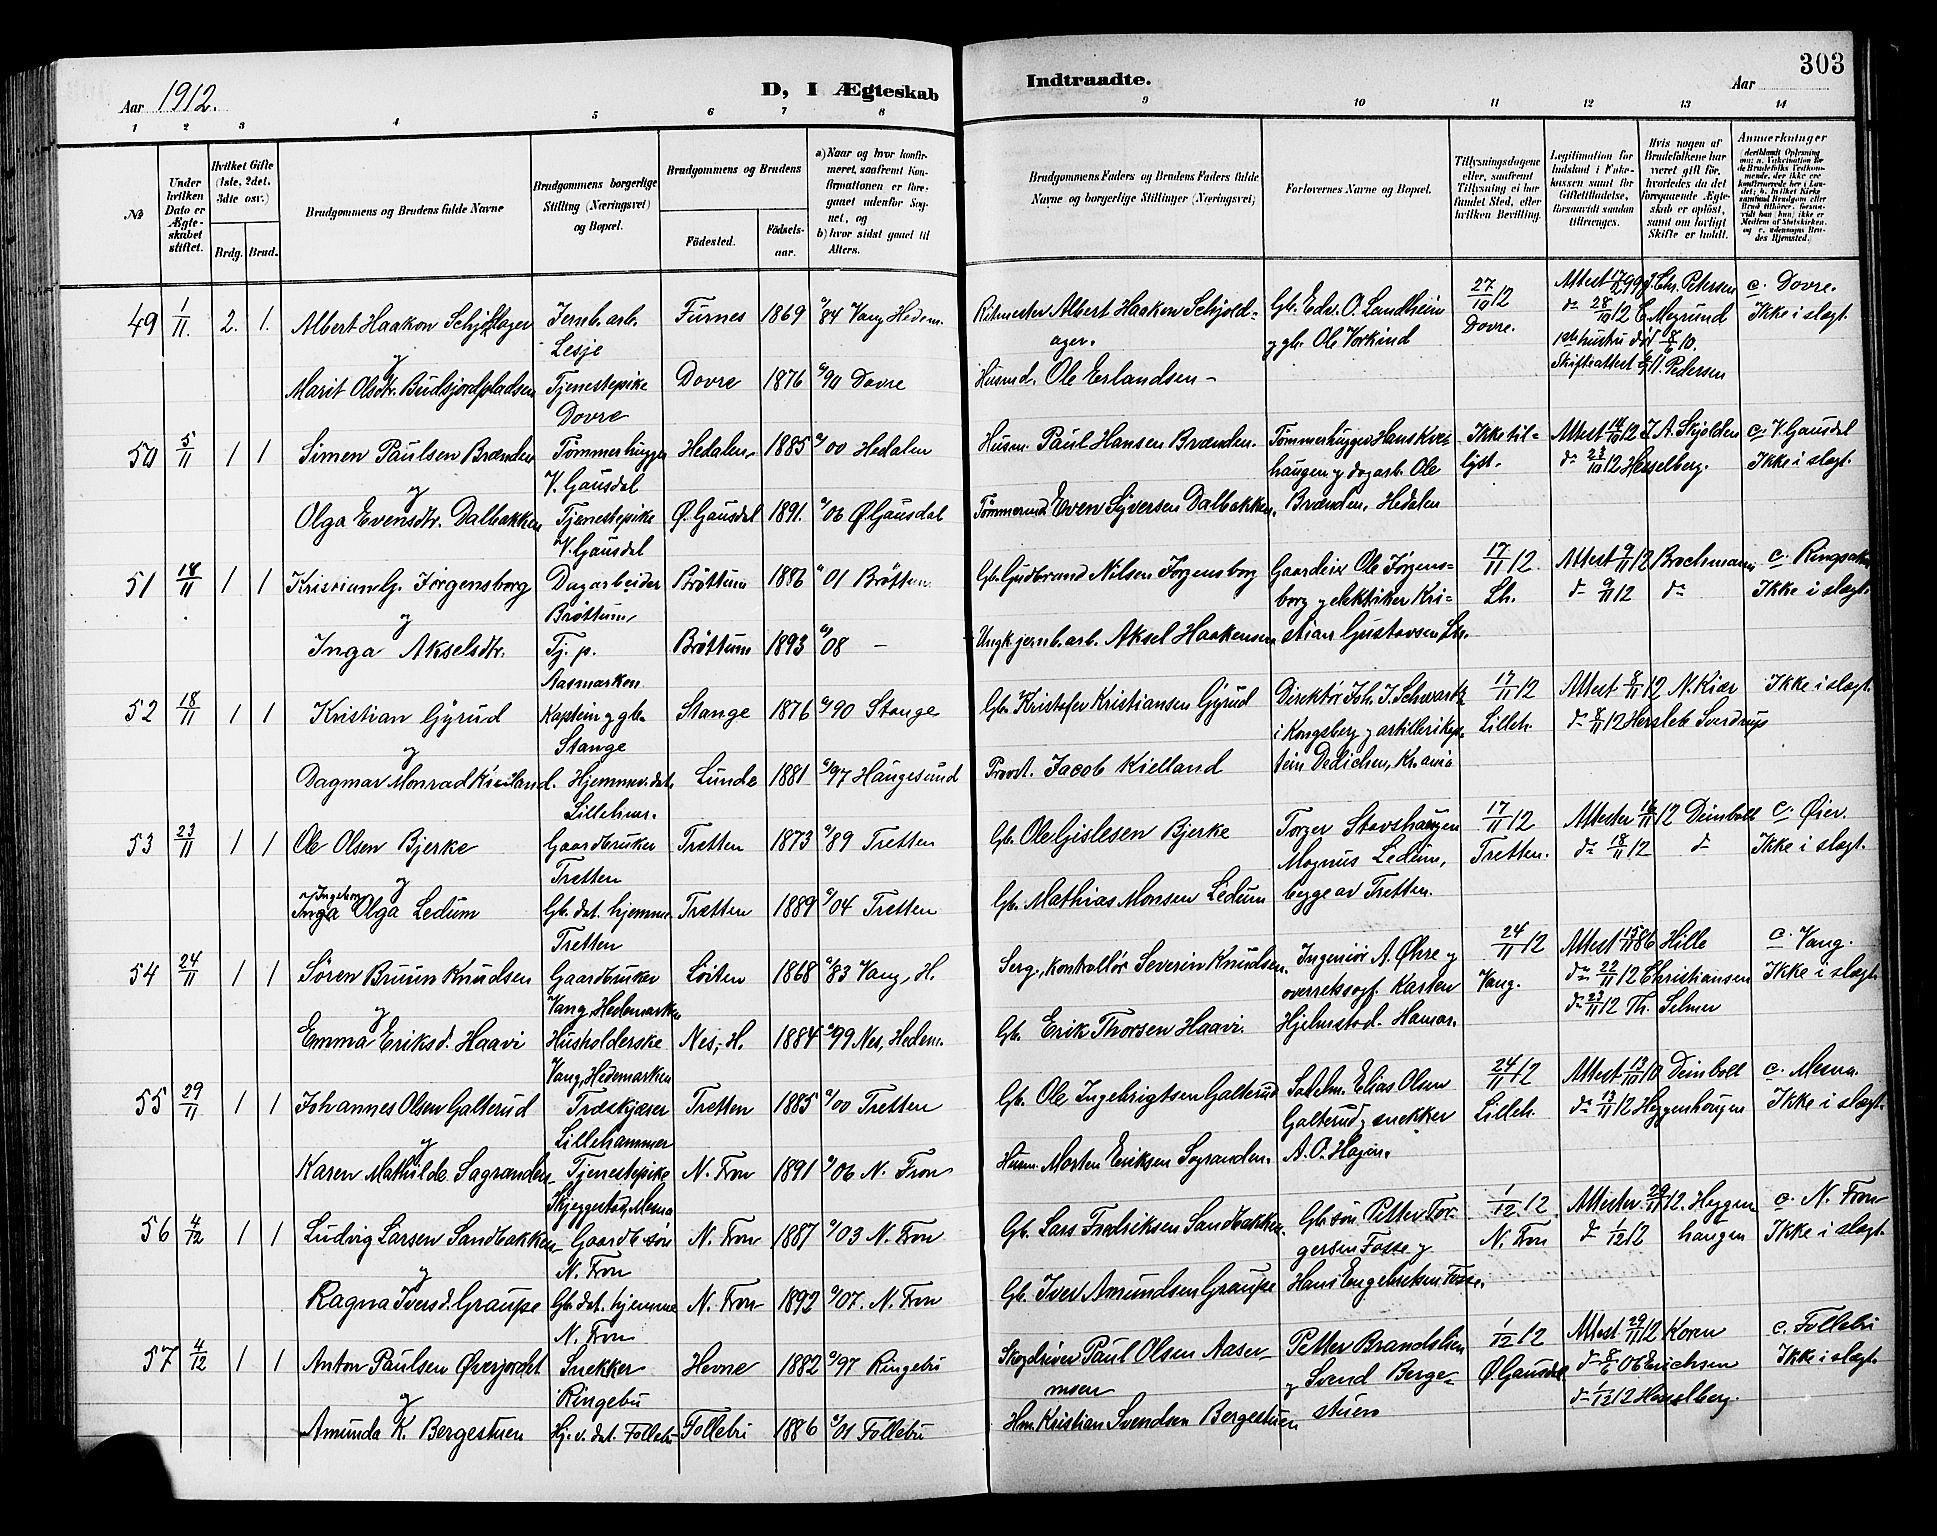 303
Aar 1912.
D, I Ægteskab Indtraadte.
Aar
1 2 3 4 5 6 7 8 9 10 11 12 13 14
No
Under hvilken Dato er Ægteskabet stiftet.
Hvilket Gifte (1ste, 2det, 3die osv.)
Brdg. Brud.
Brudgommens og Brudens fulde Navne
Brudgommens borgerlige Stilling (Næringsvei) og Bopæl.
Brudgommens og Brudens
Fødested. Fødsels-aar.
a) Naar og hvor konfirmeret, saafremt Konfirmationen er foregaaet udenfor Sognet, og
b) hvor sidst gaaet til Alters.
Brudgommens Faders og Brudens Faders fulde Navne og borgerlige Stillinger (Næringsvei)
Forlovernes Navne og Bopæl.
Tillysningsdagene eller, saafremt Tillysning ei har fundet Sted, efter hvilken Bevilling.
Legitimation for Indskud i Enkekassen samt for Giftetilladelse, forsaavidt saadan tiltrænges.
Hvis nogen af Brudefolkene har været gift før, hvorledes da det foregaaende Ægteskab er opløst, samt om lovligt Skifte er holdt.
Anmerkninger
49 1/11. 2. 1. Albert Haakon Schjoldager Jernb. arb. Lesje Furnes 1869 84 Vang Hedem. Ritmester Albert Haakon Schjoldager. Gb. Edv. O. Landheim og gb. Ole Vorkind 27/10 12 Dovre. Attest 99 J. Chr. Petersen do 28/10 12 C. Megrund 1ste hustru død 8/6 10. Skifteattest Pedersen c. Dovre. Ikke i slægt
og
Marit Olsdtr. Budsjordpladsen Tjenestepike Dovre Dovre 1876 90 Dovre Husmd. Ole Erlandsen
50 5/11 1 1 Simen Paulsen Brænden Tømmerhugger V. Gausdal Hedalen 1885 00 Hedalen Husm. Paul Hansen Brænden. Tømmerhugger Hans Kvehaugen og dagarb. Ole Brænden, Hedalen Ikke tillyst. Attest 12 J. A. Skjolden do 23/10 12 Hesselberg. c. V. Gausdal Ikke i slægt.
og
Olga Evensdtr. Dalbakken Tjenestepike V. Gausdal Ø. Gausdal 1891. 06 Ø. Gausdal Tømmermd Even Syversen Dalbakken.
51 18/11 1 1 Kristian G. Jørgensborg Dagarbeider Brøttum Brøttum 1886 01 Brøttum Gb. Gudbrand Nilsen Jørgensborg Gaardeier Ole Jørgensborg og elektriker Kristian Gustavsen Lh. 17/11 12. Lh. Attest 9/11 12 Brochmann do 9/11 12 do c. Ringsaker Ikke i slægt.
og
Inga Akselsdtr. Tj. p. Aasmarken Brøttum 1893 08 — Ungk. jernb. arb. Aksel Haakensen
52 18/11 1 1 Kristian Gyrud Kaptein og gbr. Stange Stange 1876 90 Stange Gb. Kristofer Kristiansen Gyrud Direktør Joh. J. Schwartz i Kongsberg og artillerikaptein Dedichen, Kr.ania 17/11 12 Lilleh. Attest 8/11 12 N. Kiær do 8/11 12 Hersleb Sverdrup Ikke i slægt.
og
Dagmar Monrad Kielland. Hjemmev. dat. Lillehmr. Lunde 1881 97 Haugesund Provst. Jacob Kielland
53 23/11 1 1 Ole Olsen Bjerke Gaardbruker Tretten Tretten 1873 89 Tretten Gb. Ole Gislesen Bjerke Torger Stavshaugen Magnus Ledum, begge av Tretten. 17/11 12 Tretten. Attester 16/11 12 Deinboll do 18/11 12 do c. Øier. Ikke i slægt.
og
Ingeborg
Inga Olga Ledum Gb. dat. hjemme Tretten Tretten 1889 04 Tretten Gb. Mathias Monsen Ledum
54 24/11 1 1 Søren Bruun Knudsen Gaardbruker Vang, Hedemarken Løiten 1868 83 Vang, H. Serg., kontrollør Severin Knudsen. Ingeniør A. Øhre og overretssagf. Karsten Hjelmstad. Hamar. 24/11 12 Vang. Attest 86 Hille do 22/11 12 Christiansen do 23/11 12 Th. Selmer c. Vang. Ikke i slægt.
og
Emma Eriksd. Haavi Husholderske Vang, Hedemarken Nes, H. 1884 99 Nes, Hedem. Gb. Erik Thorsen Haavi.
55 29/11 1 1 Johannes Olsen Galterud Træskjærer Lillehammer Tretten 1885 00 Tretten Gb. Ole Ingebrigtsen Galterud Elias Olsen Galterud og snekker A. O. Hagen. 24/11 12 Lilleh. Attest Deinboll do 13/11 12 Heggenhougen c. Mesna. Ikke i slægt.
og
Karen Mathilde Sagranden Tjenestepike Skjeggestad, Mesna N. Fron 1891 06 N. Fron Husm. Morten Eriksen Sagranden.
56 4/12 1 1 Ludvig Larsen Sandbakken Gaardb. søn N. Fron N. Fron 1887 03 N. Fron Gb. Lars Fredriksen Sandbakken. Gb. søn Petter Torgersen Fosse og Hans Engebretsen Fosse. 1/12 12. N. Fron Attester 29/11 12. Heggenhaugen do 1/12 12 c. N. Fron Ikke i slægt.
og
Ragna Iversd. Graupe Gb. dat. hjemme N. Fron N. Fron 1892 07. N. Fron Gb. Iver Amundsen Graupe
57 4/12 1 1 Anton Paulsen Øverjordet Snekker Ringebu Hevne 1882 97 Ringebu Skogdriver Paul Olsen Aasermoen Petter Brandslien og Svend Bergestuen 1/12 12 Ø. Gausdal Attest 29/11 12 Koren do 8/6 06 Erichsen do 1/12 12 Hesselberg. c. Follebu Ikke i slægt.
og
Amunda K. Bergestuen Hj. v. dat. Follebu Follebu 1886 01 Follebu Hm. Kristian Svendsen Bergestuen